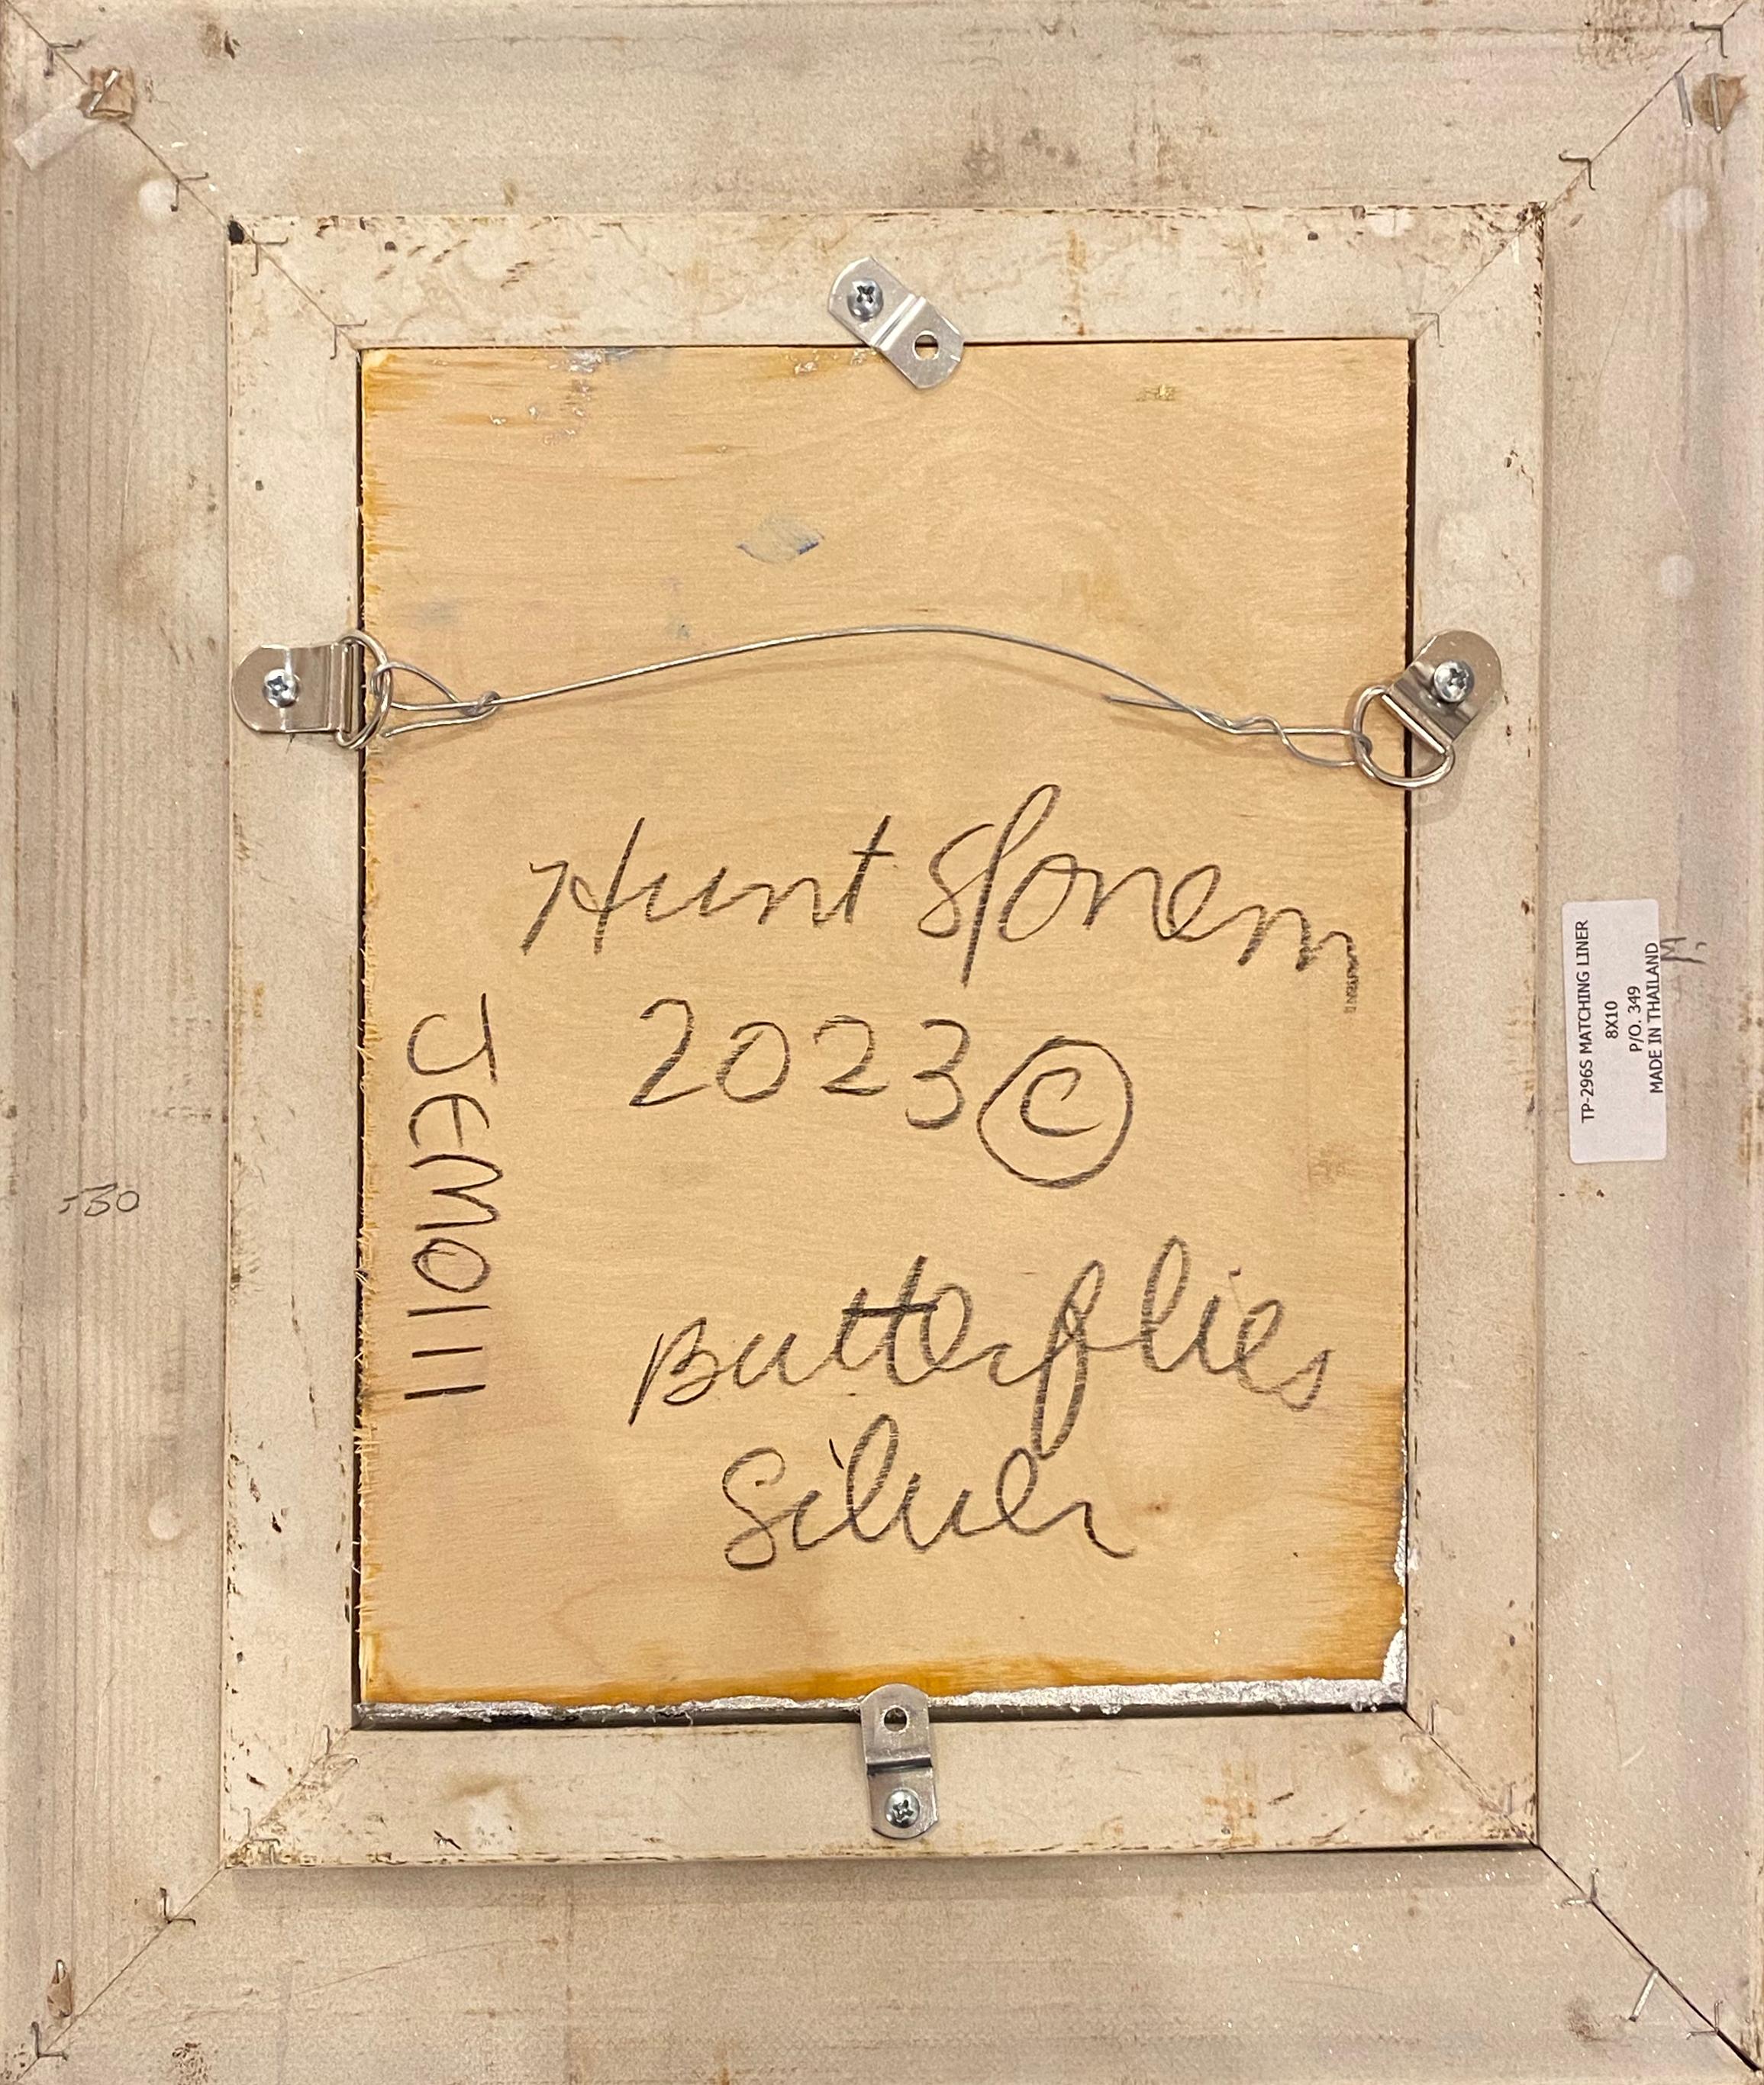 Hunt Slonem
2023 ©
Butterflies
Silver
JEM0111
TP-296S MATCHING LINER
8X10
P/O. 349
MADE IN THAILAND